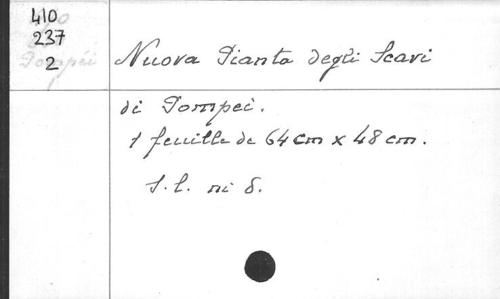 410
237
2
Pompéi
Nuova Pianta degli Scavi
di Pompei.
1 feuille de 64 cm x 48 cm.
S. l. ni d.